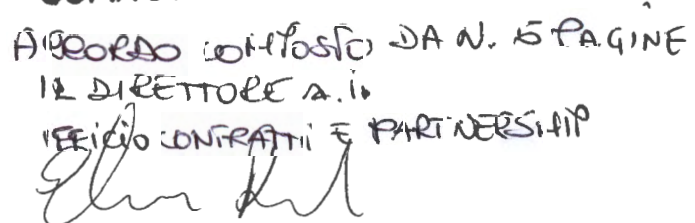 ACCORDO COMPOSTO DA N. 5 PAGINE
IL DIRETTORE a.i.
UFFICIO CONTRATTI E PARTNERSHIP